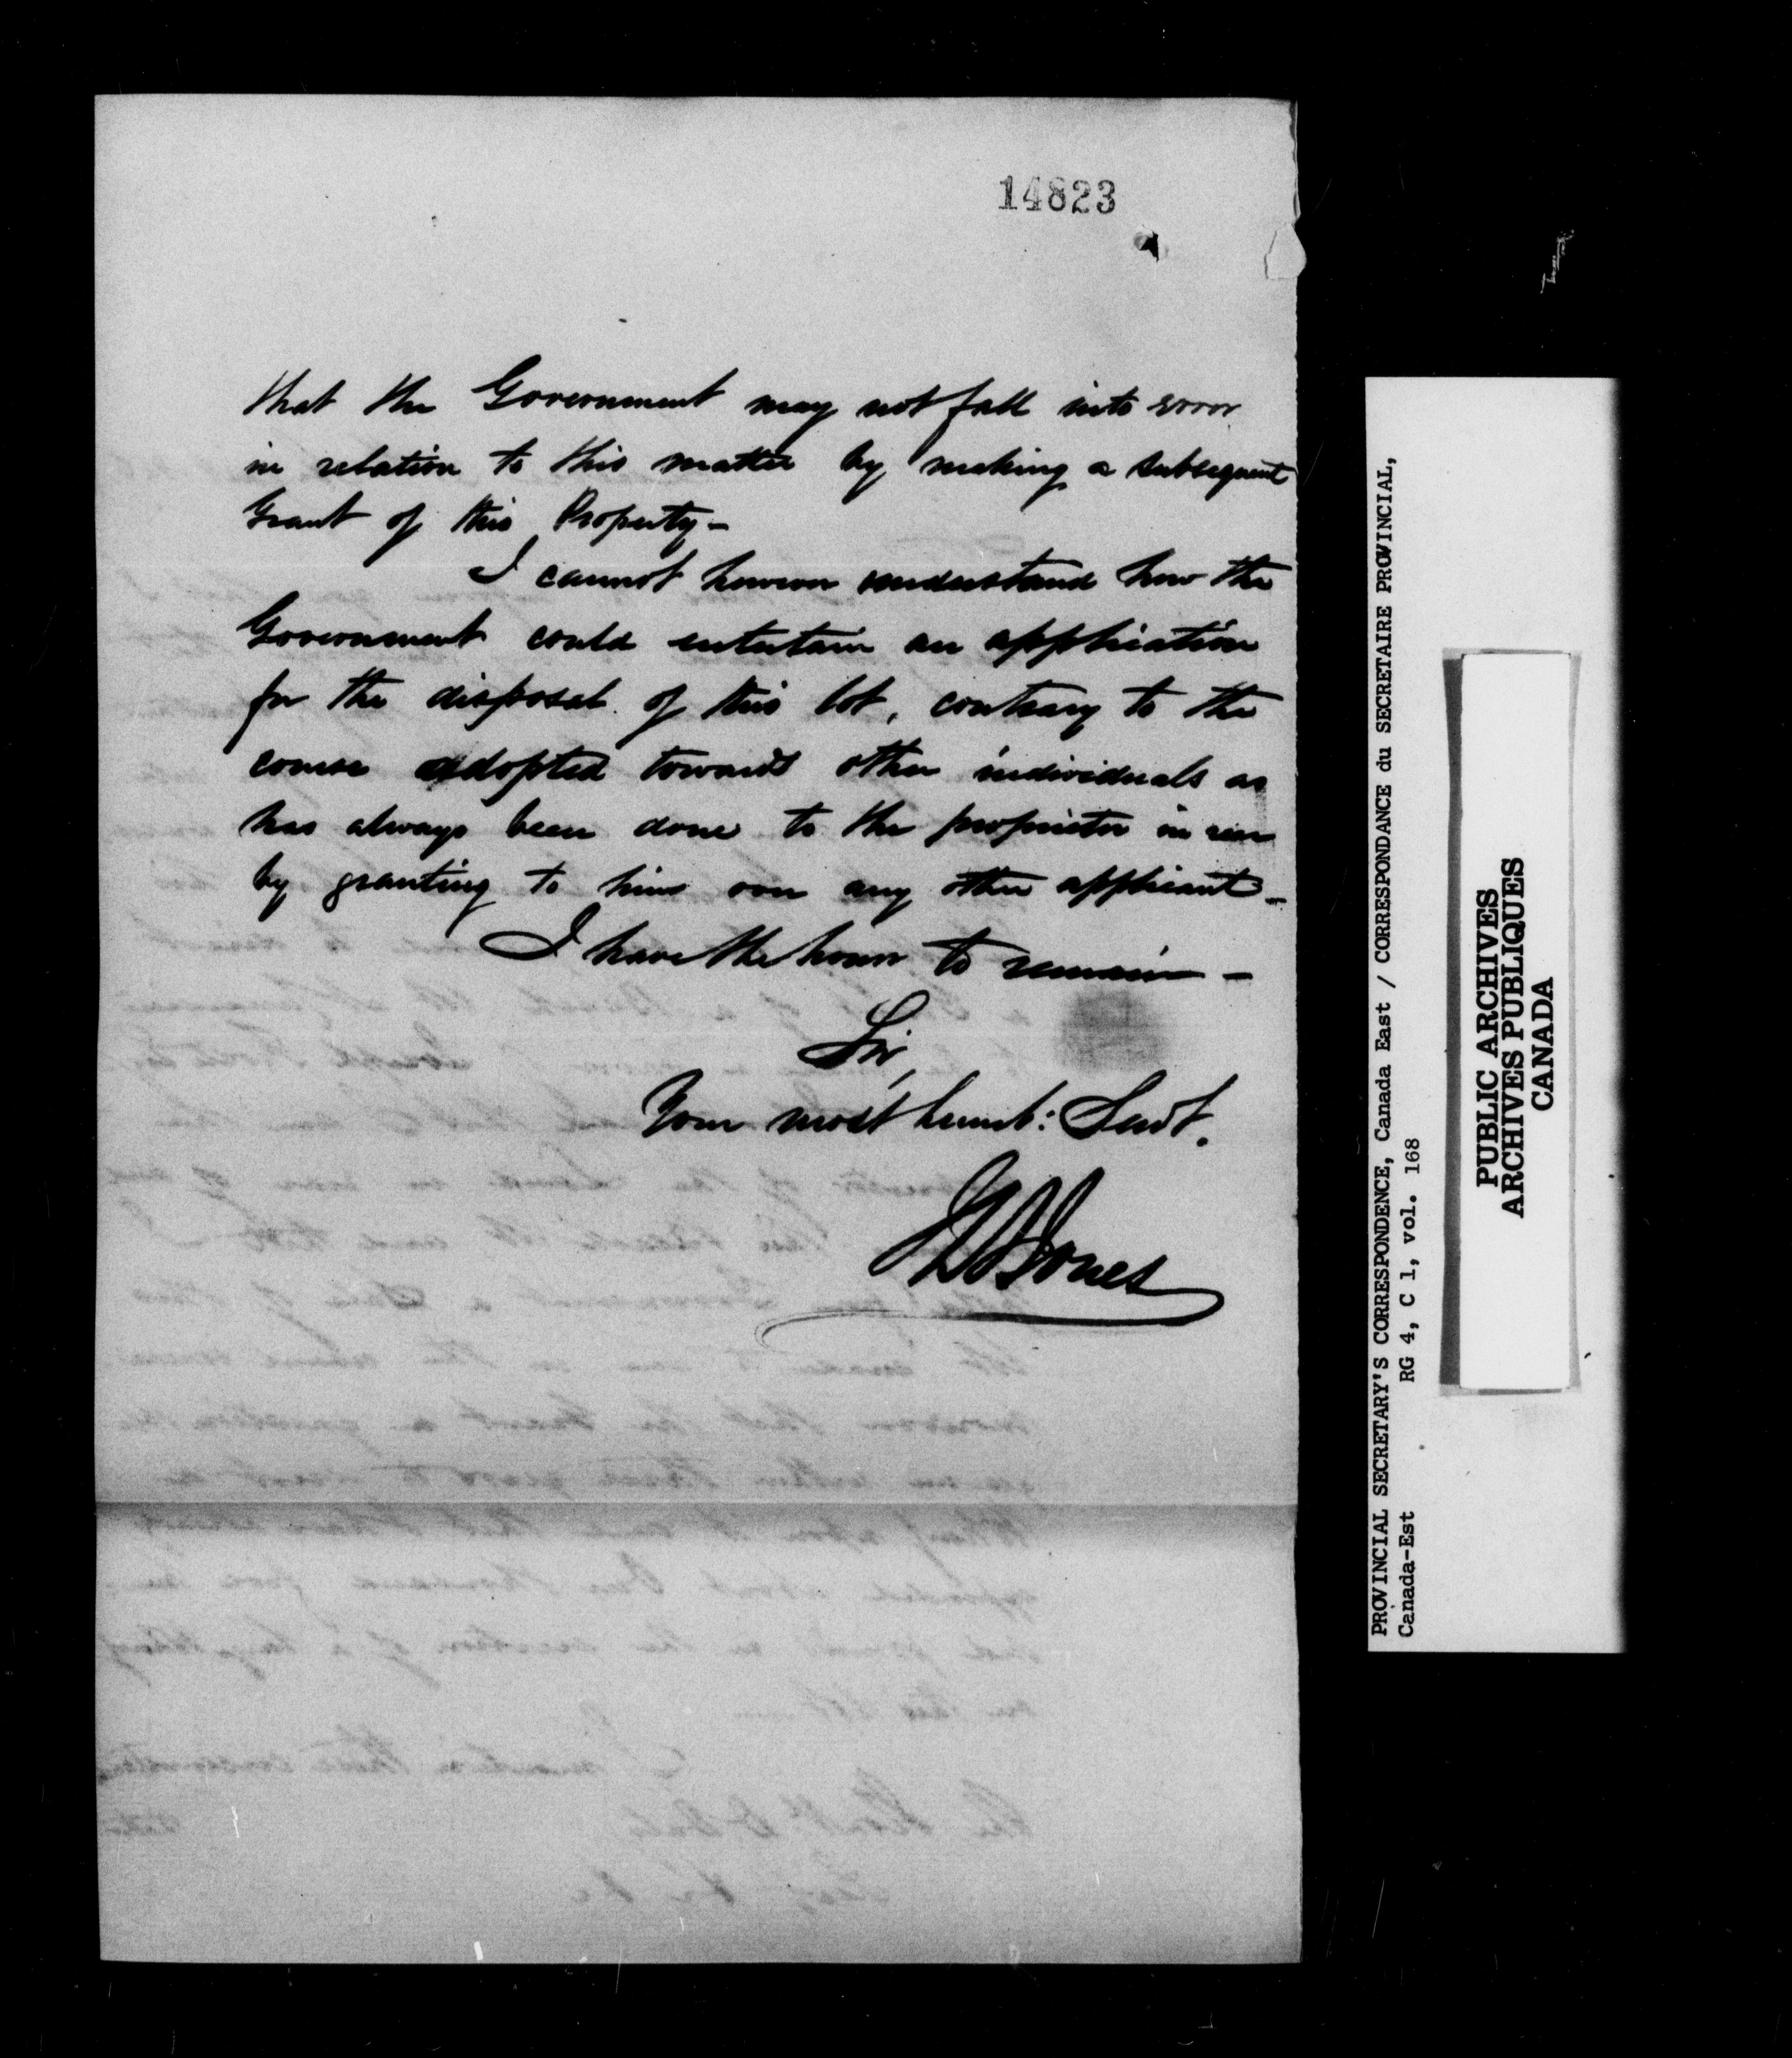 14823
that the Government may not fall into error
in relation to this matter by making a subsequent
Grant of this Property –
I cannot however understand how the
Government could entertain an application
for the disposal of this lot, contrary to the
course adopted towards other individuals as
has always been done to the proprietor in rear
by granting to him over any other applicant –
I have the honor to remain –
Sir,
Your most humb: Servt.
Jones
PROVINCIAL SECRETARY'S CORRESPONDENCE, Canada East / CORRESPONDANCE du SECRETAIRE PROVINCIAL,
Canada-Est RG 4, C 1, vol. 168
PUBLIC ARCHIVES
ARCHIVES PUBLIQUES
CANADA